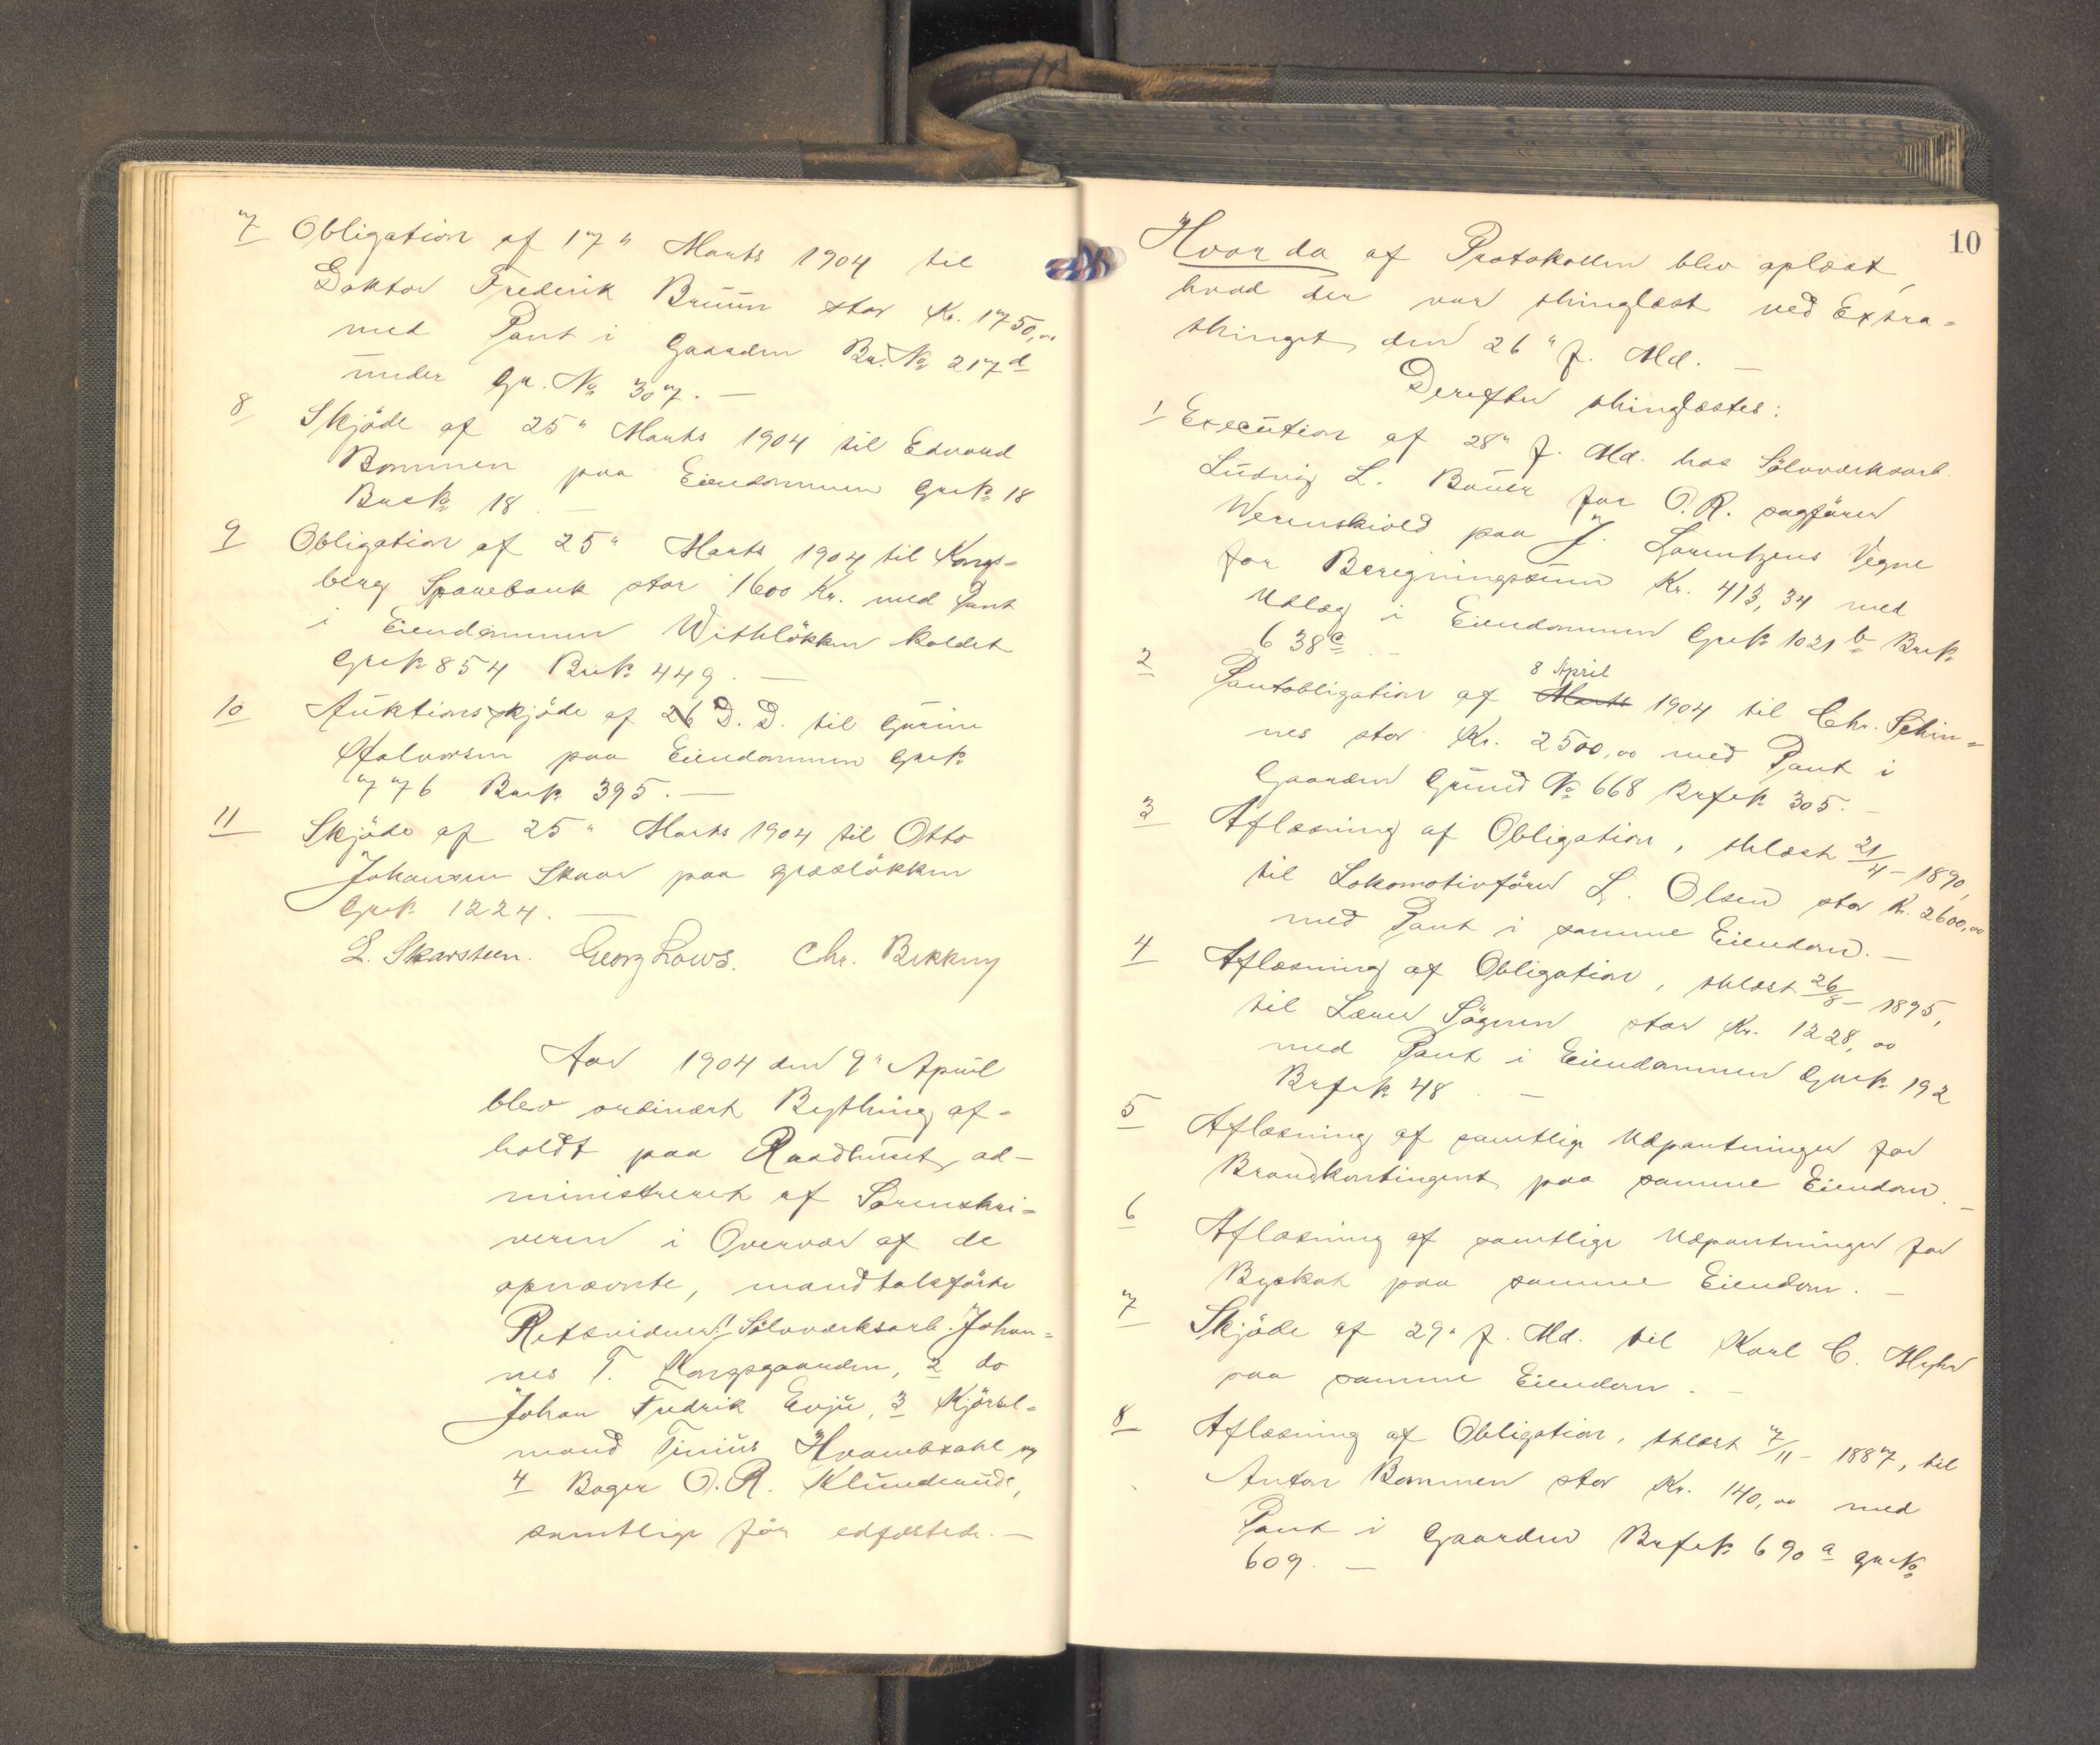 7 Obligation af 17" Marts 1904 til
Doktor Frederik Bruun stor Kr. 1750,00
med Pant i Gaarden Br. No 217d
under Gr. No 307. —
8 Skjöde af 25" Marts 1904 til Edvard
Bommen paa Eiendommen Gr№ 18
Br№ 18. —
9 Obligation af 25" Marts 1904 til Kongs=
berg Sparebank stor 1600 Kr. med Pant
i Eiendommen Withlökken kaldet
Gr№ 854 Br№ 449. —
10 Auktionsskjöde af 26 D. D. til Gurine
Halvorsen paa Eiendommen Gr№
776 Br№ 395. —
11 Skjöde af 25" Marts 1904 til Otto
Johansen Skaar paa græslökken
Gr№ 1224. —
L. Skarsteen. Georg Lows. Chr. Bekkny
Aar 1904 den 9" April
blev ordinært Bything af=
holdt paa Raadhuset, ad=
ministreret af Sorenskri=
veren i Overvær af de
opnævnte, mandtalsförte
Retsvidner: 1 Sölvværksarb. Johan=
nes T. Kongsgaarden, 2 do
Johan Fredrik Evju, 3 Kjörsel=
mand Tinius Hvambsahl og
4 Bager O. R. Klunderud,
samtlige för edfæstede. —
10
Hvorda af Protokollen blev oplæst,
hvad der var thinglæst ved Extra=
thinget den 26" f. Md. —
Derefter thinglæstes:
1 Execution af 28" f. Md. hos Sölvværksarb.
Ludvig L. Bauer for O. R. sagförer
Werenskiold paa J. Lorentzens Vegne
for Beregningssum Kr. 413,34 med
Udlæg i Eiendommen Gr№ 1021 b Br№
638c. —
8 April
2 Pantobligation af Marts 1904 til Chr. Schin=
nes stor Kr. 2500,00 med Pant i
Gaarden Grund № 668 Brf№ 305. —
3 Aflæsning af Obligation, thlæst 21/4 - 1890,
til Lokomotivförer L. Olsen stor Kr. 2600,00
med Pant i samme Eiendom. —
4 Aflæsning af Obligation, thlæst 26/8 - 1895,
til Lærer Sögnen stor Kr. 1228,00
med Pant i Eiendommen Gr№ 192
Brf№ 48. —
5 Aflæsning af samtlige Udpantninger for
Brandkontingent paa samme Eiendom. —
6 Aflæsning af samtlige Udpantninger for
Byskat paa samme Eiendom. —
7 Skjöde af 29" f. Md. til Karl C. Myhr
paa samme Eiendom. —
8 Aflæsning af Obligation, thlæst 7/11 - 1887, til
Anton Bommen stor Kr. 140,00 med
Pant i Gaarden Brf№ 690a Gr№
609. —